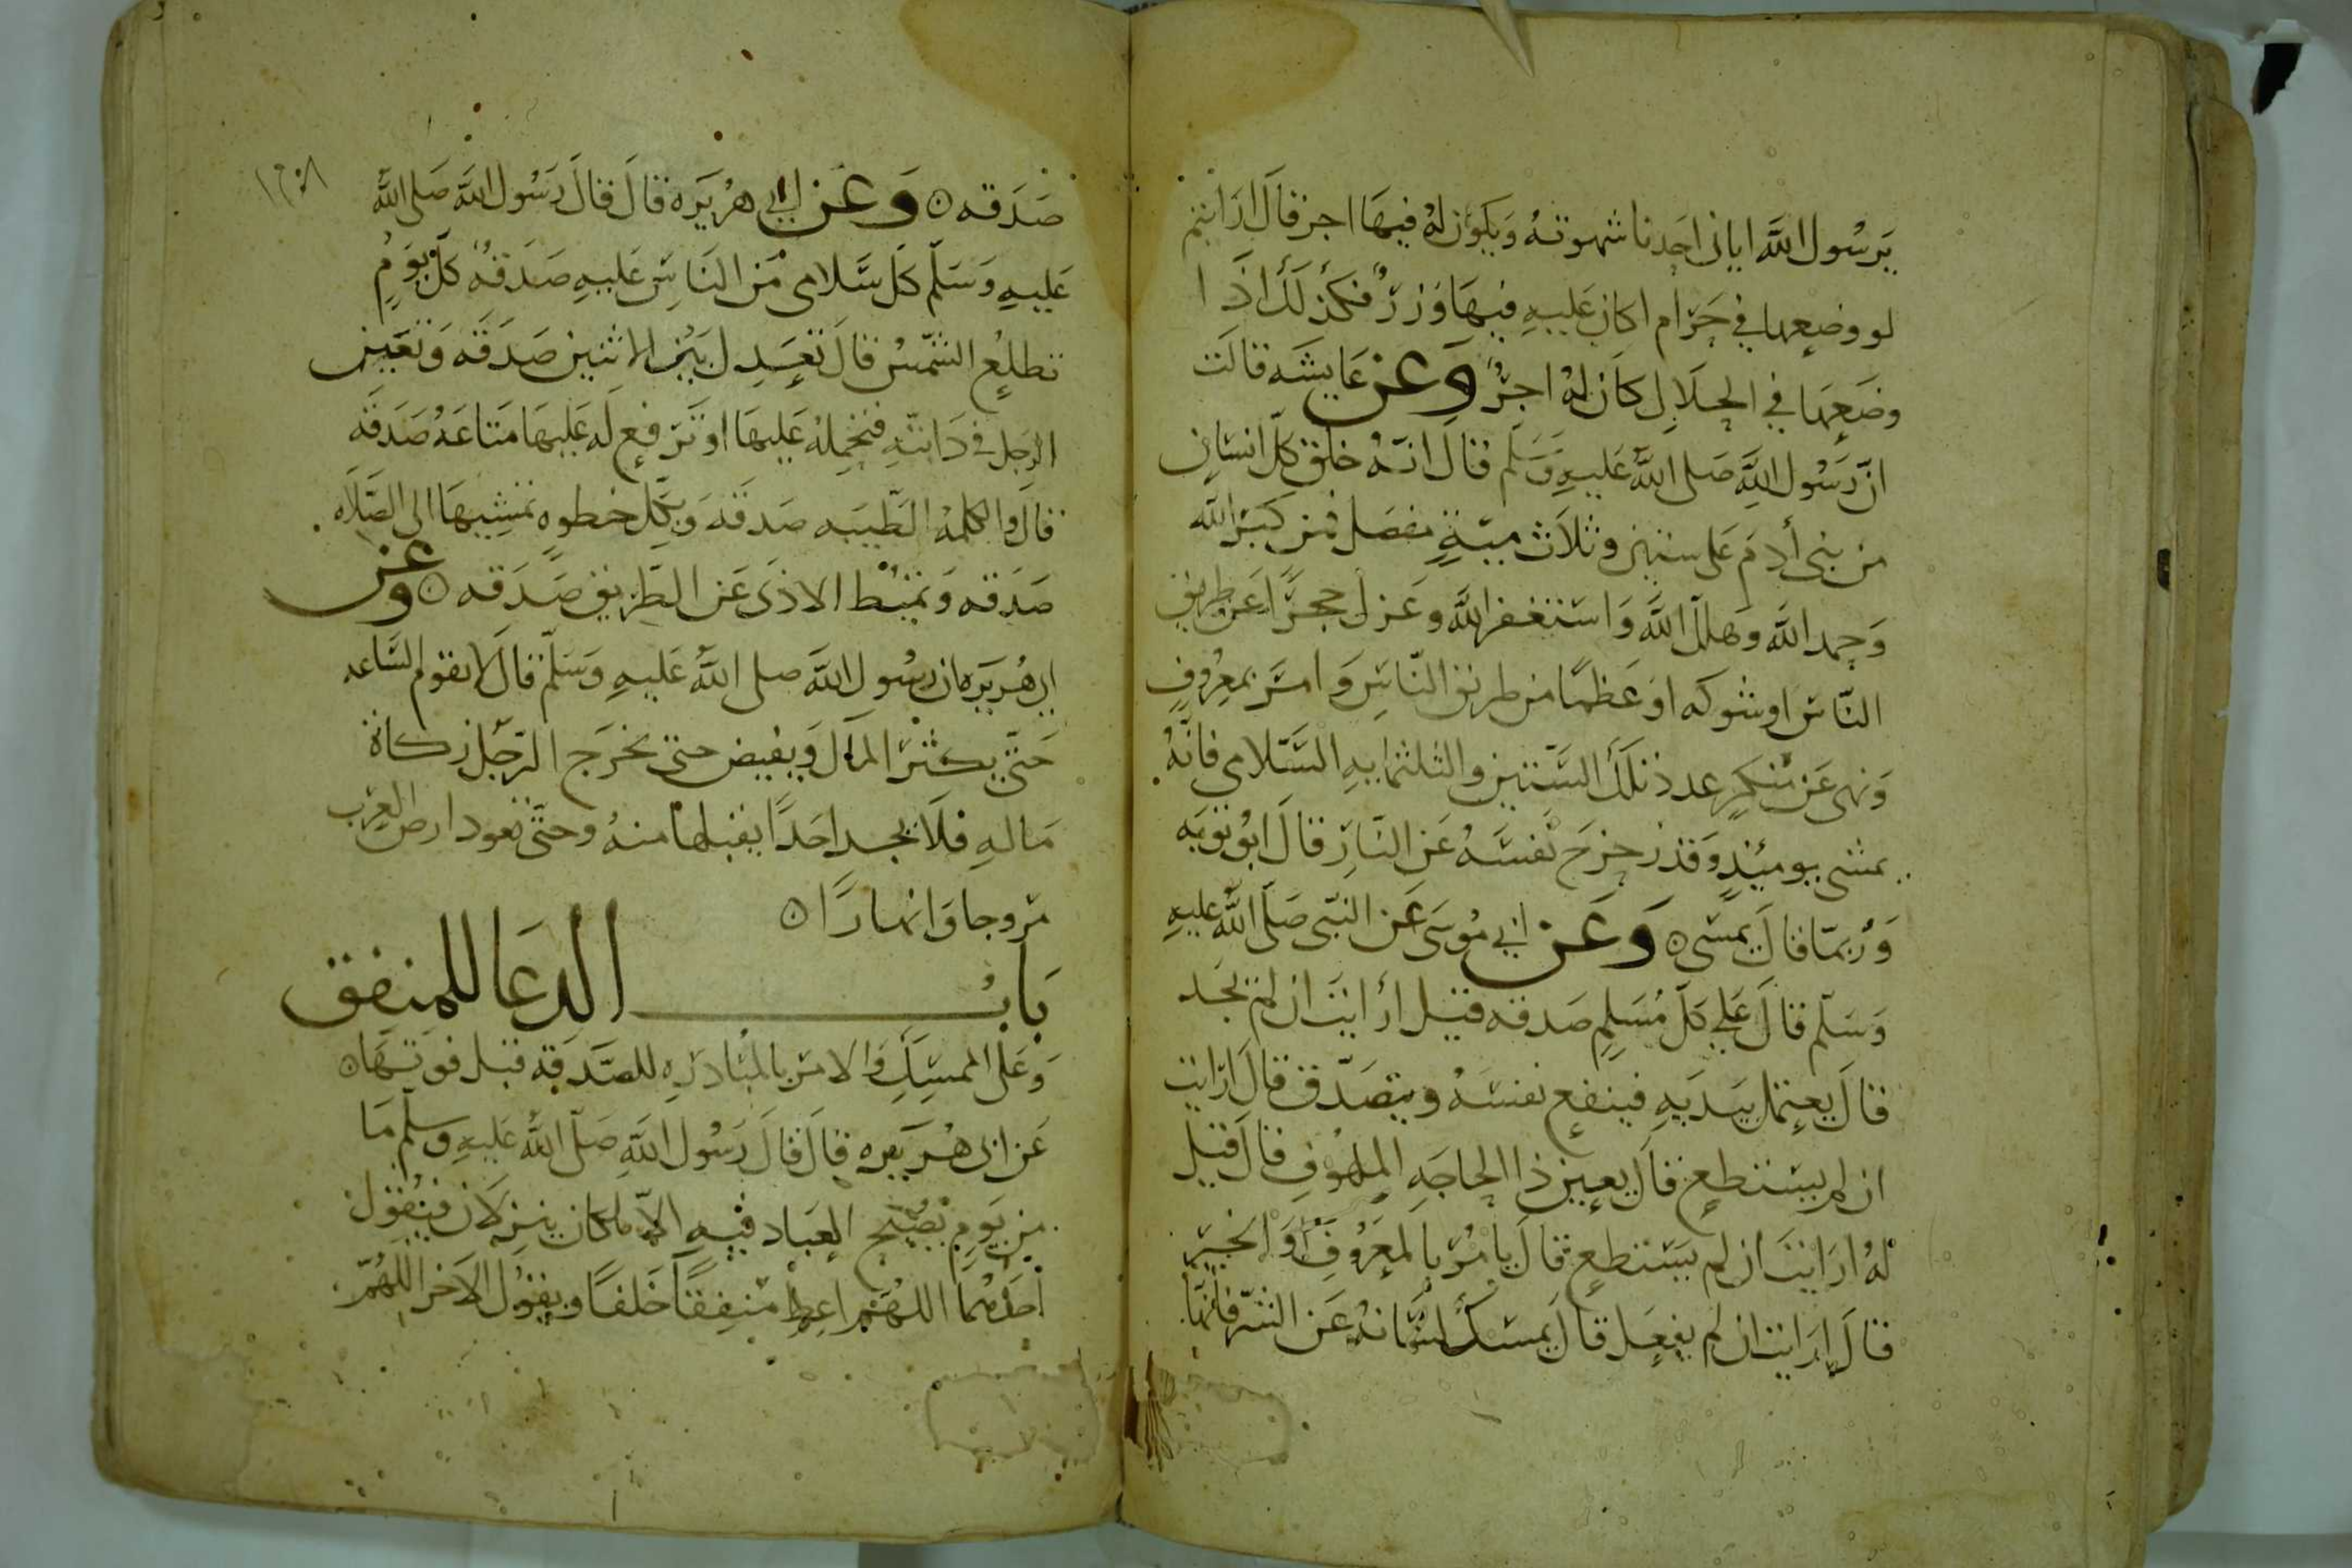 يَرسُول اللَّه اياتى احَدنا شهوتهُ وَيكوَن لهُ فيهَا اجر قالَ ارَايتم
لو وضعها في حَرَام اكان عَليهِ فيهَا وَزرٌ فكذلَكَ اذَا
وضَعهَا في الحلَالِ كَان لهُ اجرٌ وَعن عَايشَه قالَت
انّ رَسُول اللَّهِ صَلى اللَّهُ عَليهِ وَسَلم قالَ انهُ خلقَ كلّ انسَانٍ
من بنى أدمَ عَلى ستين وثلَاث ميةٍ مفصَل فمن كبّر اللَّه
وَحمد اللَّه وهَلل اللَّه وَاستغفر اللَّه وعَزل حجرًا عَن طريق
النّاس اوشوكه اوعَظمًا من طريق النّاسِ وَامرَ بمعرُوفٍ
وَنهى عَن مُنكرٍ عدد تلكَ السّتين والثلثمايهِ السّلامى فانّهُ
يمشى يوميئذٍ وَقد زحزحَ نَفسَهُ عَن النّارِ قالَ ابُو توبَه
وَرُبمّا قالَ يمسى ٥ وَعَن ابي مُوسَى عَن النبّى صَلّى اللَّه عليهِ
وَسَلّم قالَ عَلي كلّ مُسَلِمٍ صَدقه قيل ارأيتَ ان لم يجد
قالَ يعتمل بيَدَيهِ فينفع نفسَهُ ويتصَدّق قالَ ارَايت
ان لم يستطع قالَ يعين ذا الحاجَهِ الملهُوفِ قالَ قيل
لهُ ارَايتَ ان لم يستطع قالَ يامُر بالمعَرُوفِ اوَ الخيَر
قالَ ارَايت ان لم يفعَل قالَ يمسكُ لسَانهُ عَن الشّرِ فانهّا
صَدَقه ٥ وَعَن ابي هرُيَره قالَ قالَ رَسُول اللَّه صَلى اللَّهُ
عَليهِ وَسَلّم كلّ سَّلامى مَن النَاسِ عَليهِ صَدقهُ كلّ يَومٍ
تطلعُ الشّمسُ قالَ تعَدِل بَين الاثنين صَدَقَه وَتعَين
الرجل في دَابتّهِ فتحملهُ عَليهَا اوتَرفع لَه عَليهَا متَاعَهُ صَدَقَه
قالَ والكلمهُ الطّيبَه صَدقَه وَبكل خطوهٍ تمشِيهَا الى الصّلَاه
صَدَقه وَتميُط الاذَى عَن الطّريق صَدَقه ٥ وعن
ابى هُرَيَره ان رسُولِ اللَّه صلى اللَّهُ عَليهِ وَسَلّم قالَ لا تقوم السَّاعه
حَتّى يكثرَ المالَ وَيفيض حتى يخرَج الرّجل زكاةَ
مَالهِ فلَا يجد احَدًا يقبلها منهُ وحتّى تعود ارض العرَب
مرَوجا وَانهارًا ٥
بَابُ الدعَا للمنفق
وَعَلى الممسِكِ وَالامر بالمُبَادرَهِ للصّدَقه قبل فوَتهَا ٥
عَن ابى هُرَيره قالَ قالَ رَسُول اللَّهِ صَلّى اللَّهُ عَليهِ وسلّم مَا
من يَومِ يُصُبح العبَاد فيهِ الاّ ملكان ينزلَان فيقُول
احَدُهُما اللهُم اعط منفِقًا خَلفًا ويقُول الاخر اللهُمّ